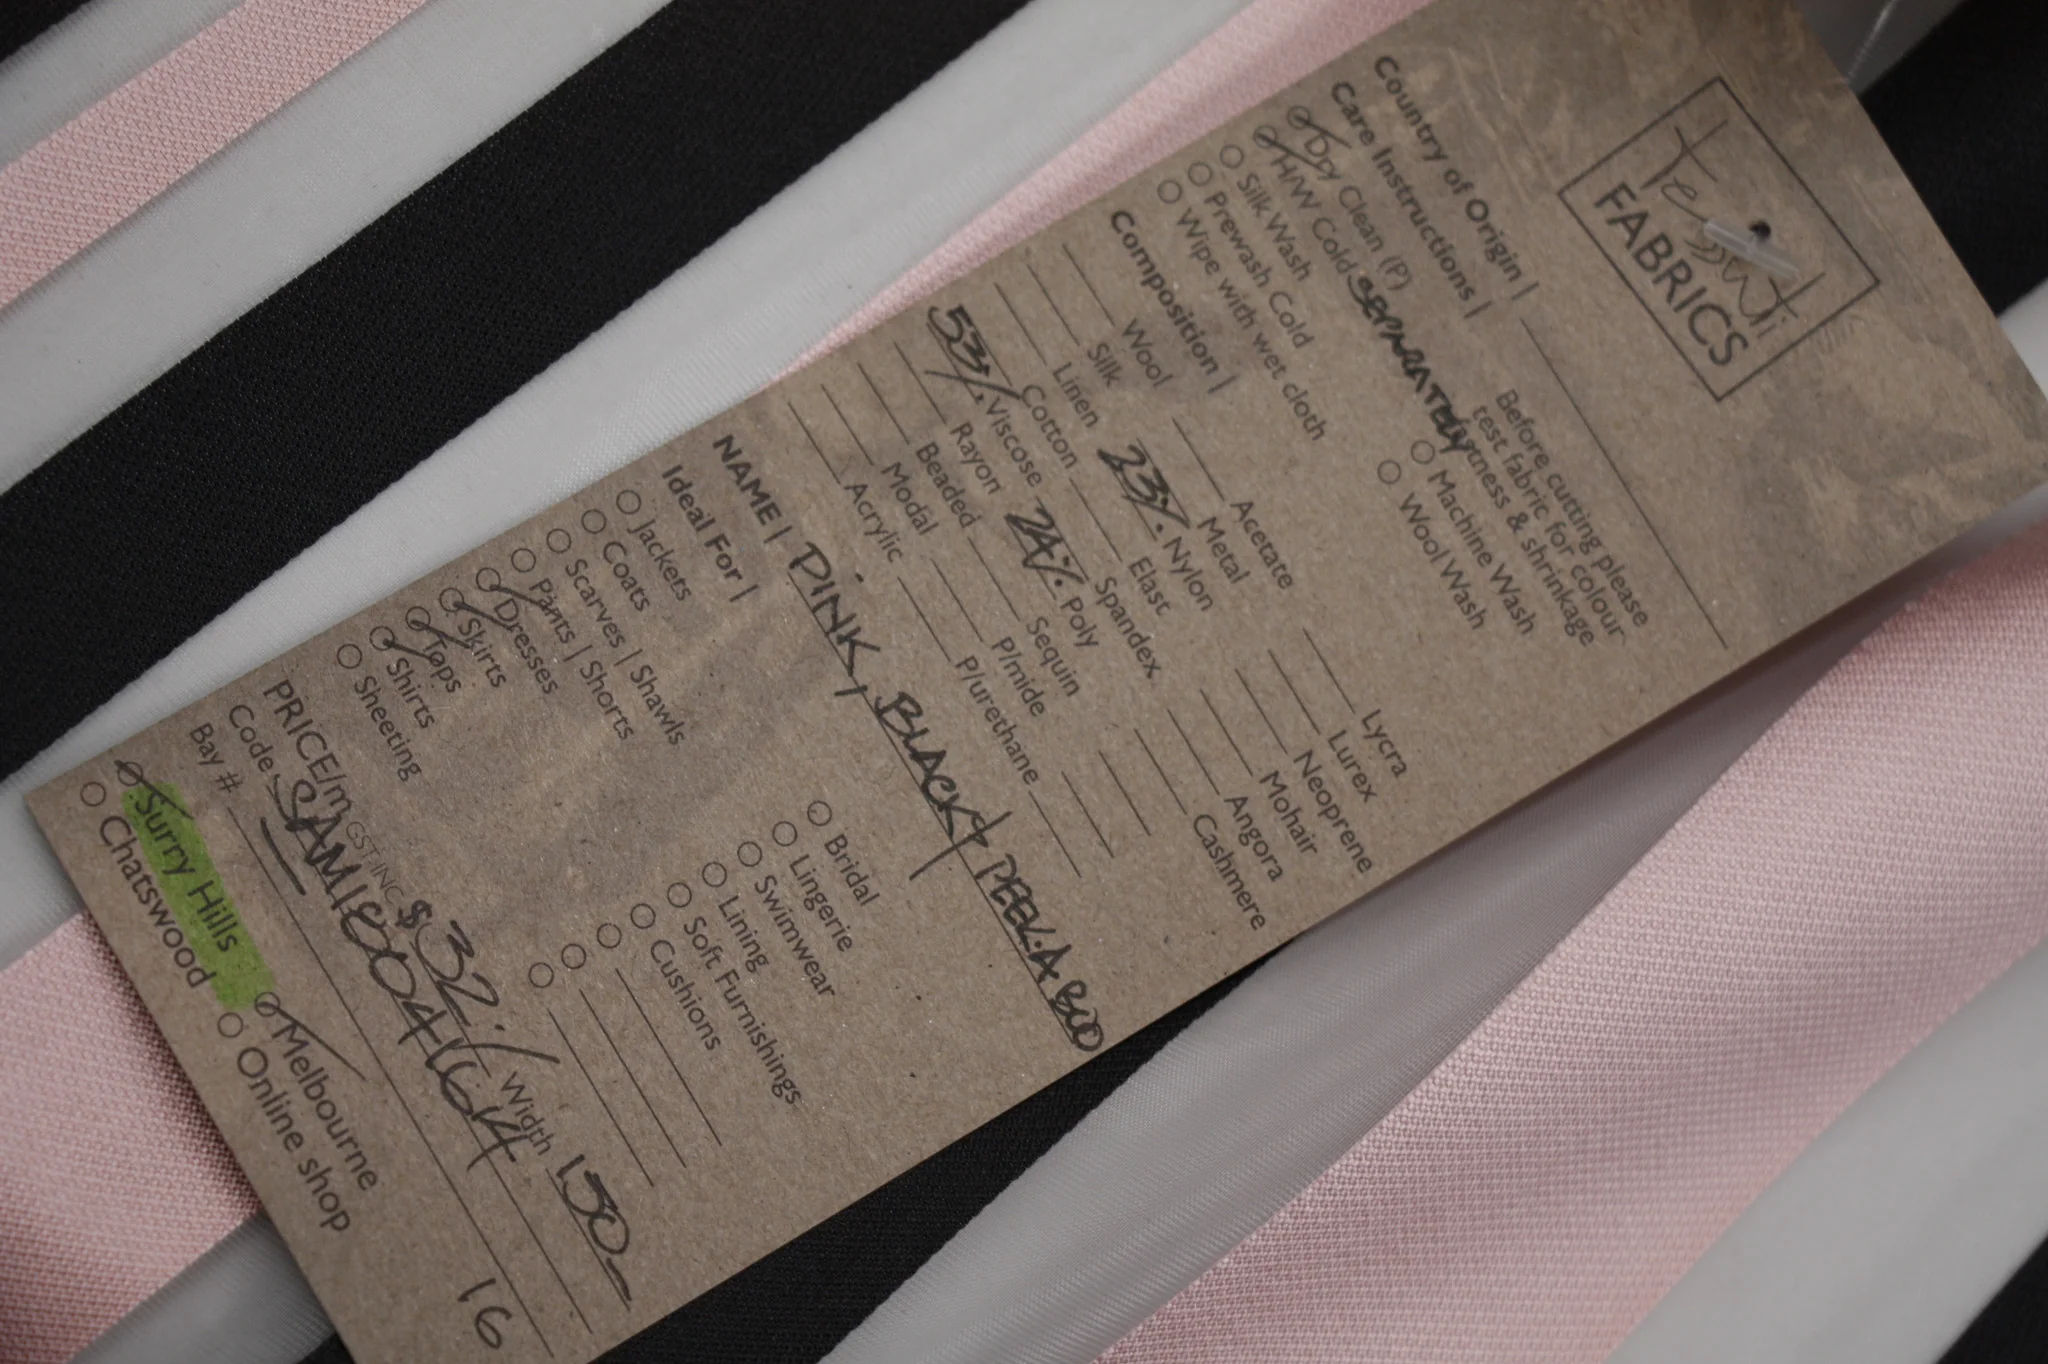 Tessuti
FABRICS
Country of Origin |
Care Instructions |
Before cutting please
test fabric for colour
Dry Clean (P)
H/W Cold SEPARATELY
tness & shrinkage
Silk Wash
Machine Wash
Prewash Cold
Wool Wash
Wipe with wet cloth
Composition |
Wool
Acetate
Lycra
Silk
Metal
Lurex
Linen
23% Nylon
Neoprene
Cotton
Elast
Mohair
53% Viscose
Spandex
Angora
Rayon
24% Poly
Cashmere
Beaded
Sequin
Modal
P/mide
Acrylic
P/urethane
NAME | PINK, BLACK PEEK.A BOO
Ideal For |
Jackets
Bridal
Coats
Lingerie
Scarves | Shawls
Swimwear
Pants | Shorts
Lining
Dresses
Soft Furnishings
Skirts
Cushions
Tops
Shirts
Sheeting
PRICE/m GST INC $32.- Width 150
Code
Bay #
16
Surry Hills
Melbourne
Chatswood
Online shop